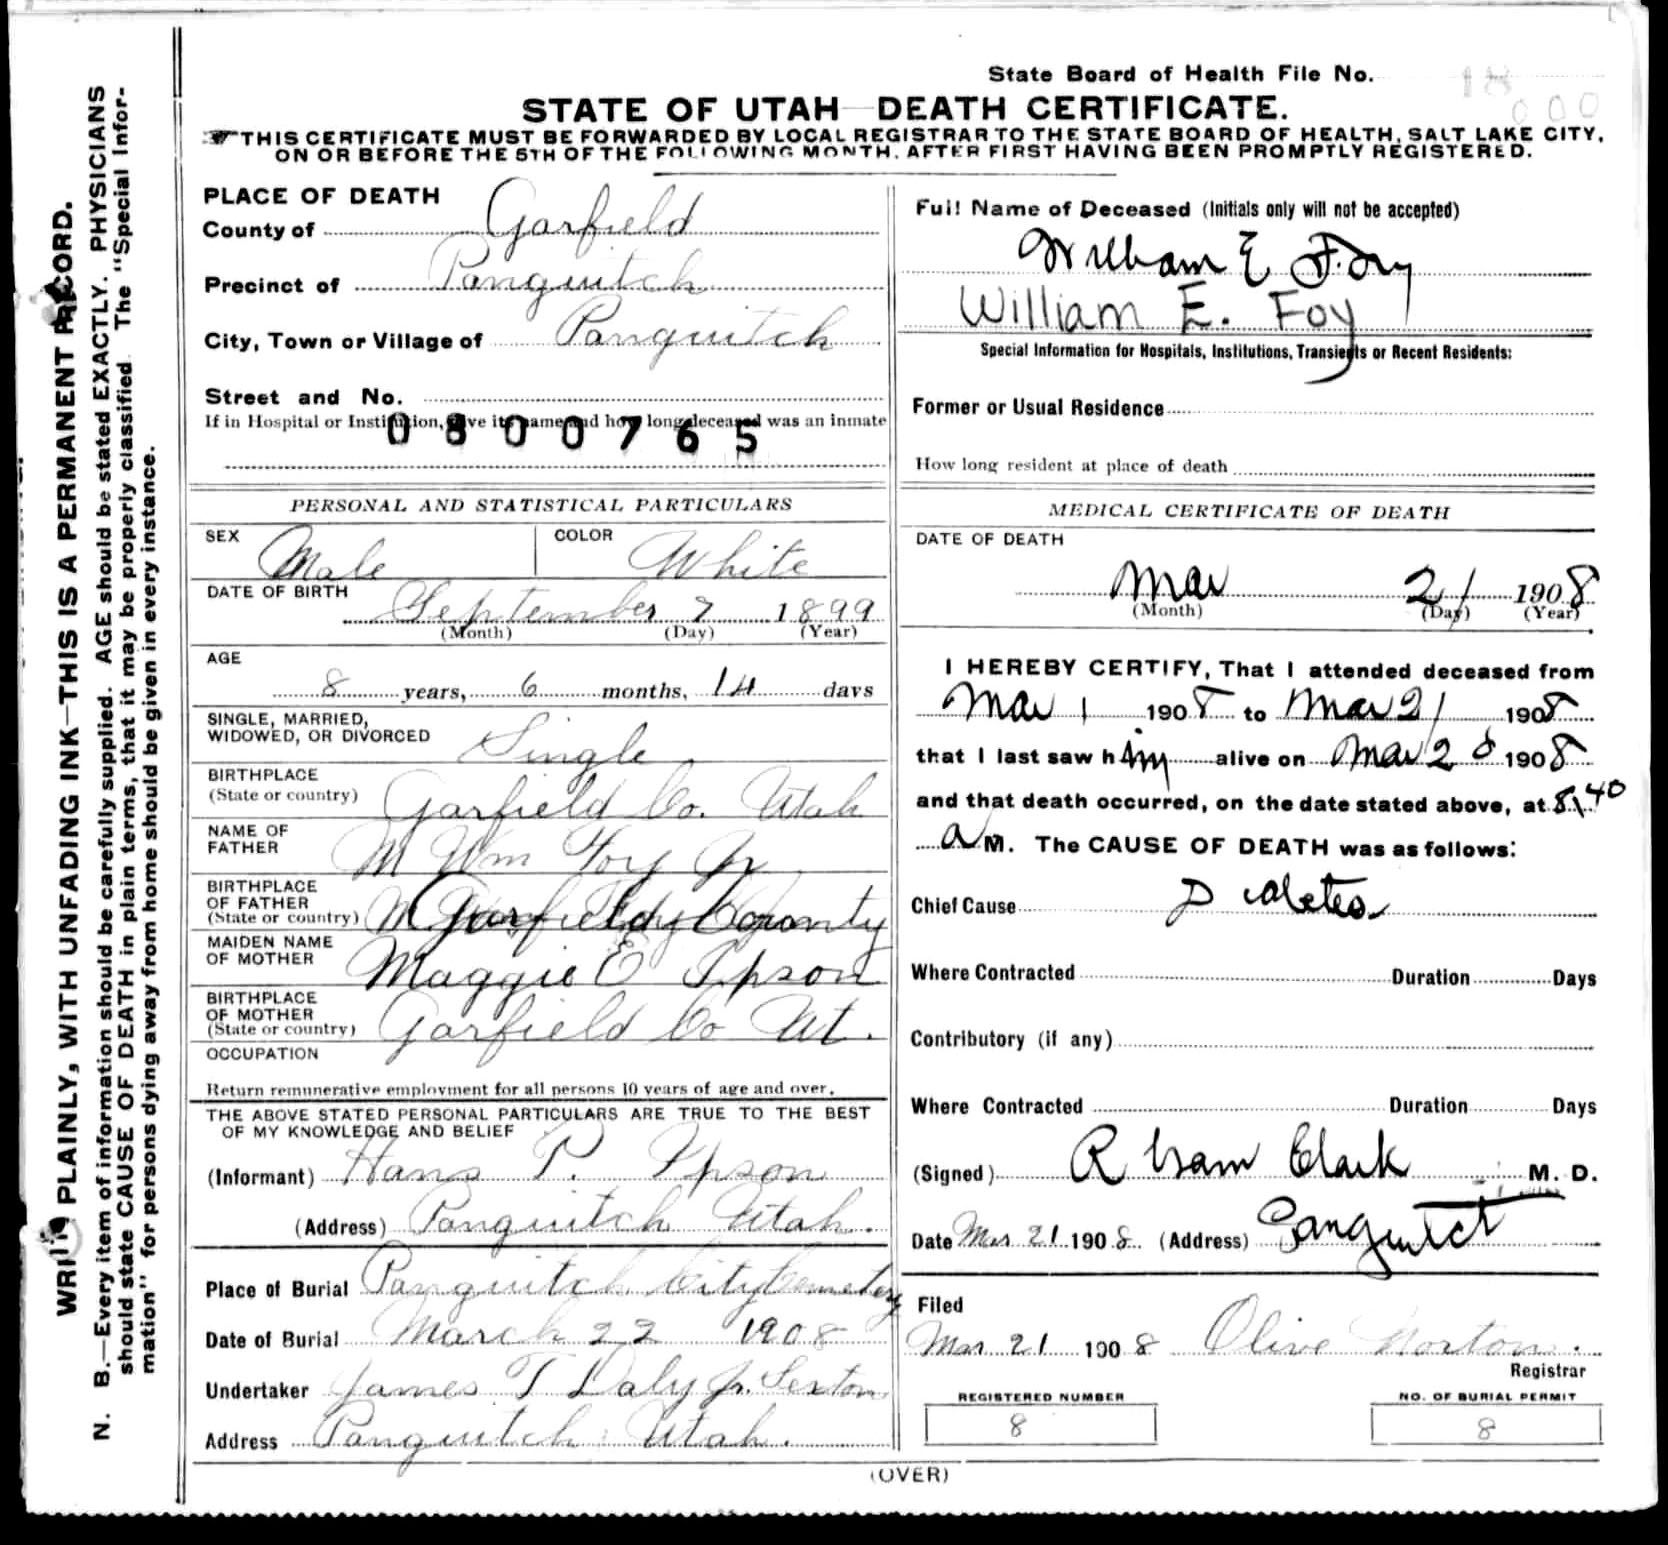 State Board of Health File No. 18
000
STATE OF UTAH—DEATH CERTIFICATE.
THIS CERTIFICATE MUST BE FORWARDED BY LOCAL REGISTRAR TO THE STATE BOARD OF HEALTH, SALT LAKE CITY,
ON OR BEFORE THE 5TH OF THE FOLLOWING MONTH, AFTER FIRST HAVING BEEN PROMPTLY REGISTERED.
WRITE PLAINLY, WITH UNFADING INK—THIS IS A PERMANENT RECORD.
N. B.—Every item of information should be carefully supplied. AGE should be stated EXACTLY. PHYSICIANS
should state CAUSE OF DEATH in plain terms, that it may be properly classified. The "Special Infor-
mation" for persons dying away from home should be given in every instance.
PLACE OF DEATH
County of Garfield
Precinct of Panguitch
City, Town or Village of Panguitch
Street and No.
If in Hospital or Institution, give its name and how long deceased was an inmate
0800765
PERSONAL AND STATISTICAL PARTICULARS
SEX Male COLOR White
DATE OF BIRTH September 7 1899
(Month) (Day) (Year)
AGE
8 years, 6 months, 14 days
SINGLE, MARRIED,
WIDOWED, OR DIVORCED Single
BIRTHPLACE
(State or country) Garfield Co. Utah
NAME OF
FATHER Wm Foy Jr
BIRTHPLACE
OF FATHER
(State or country) Garfield County
MAIDEN NAME
OF MOTHER Maggie E Ipson
BIRTHPLACE
OF MOTHER
(State or country) Garfield Co Ut.
OCCUPATION
Return remunerative employment for all persons 10 years of age and over.
THE ABOVE STATED PERSONAL PARTICULARS ARE TRUE TO THE BEST
OF MY KNOWLEDGE AND BELIEF
(Informant) Hans P. Ipson
(Address) Panguitch Utah.
Place of Burial Panguitch City Cemetery
Date of Burial March 22 1908
Undertaker James T Daly Jr. Sexton
Address Panguitch Utah.
Full Name of Deceased (Initials only will not be accepted)
William E Foy
William E. Foy
Special Information for Hospitals, Institutions, Transients or Recent Residents:
Former or Usual Residence
How long resident at place of death
MEDICAL CERTIFICATE OF DEATH
DATE OF DEATH
Mar 21 1908
(Month) (Day) (Year)
I HEREBY CERTIFY, That I attended deceased from
Mar 1 1908 to Mar 21 1908
that I last saw him alive on Mar 20 1908
and that death occurred, on the date stated above, at 8:40
a M. The CAUSE OF DEATH was as follows:
Chief Cause Diabetes
Where Contracted Duration Days
Contributory (if any)
Where Contracted Duration Days
(Signed) R Clark M. D.
Date Mar 21 1908 (Address) Panguitch
Filed
Mar 21 1908 Olive Norton.
Registrar
REGISTERED NUMBER NO. OF BURIAL PERMIT
8 8
(OVER)